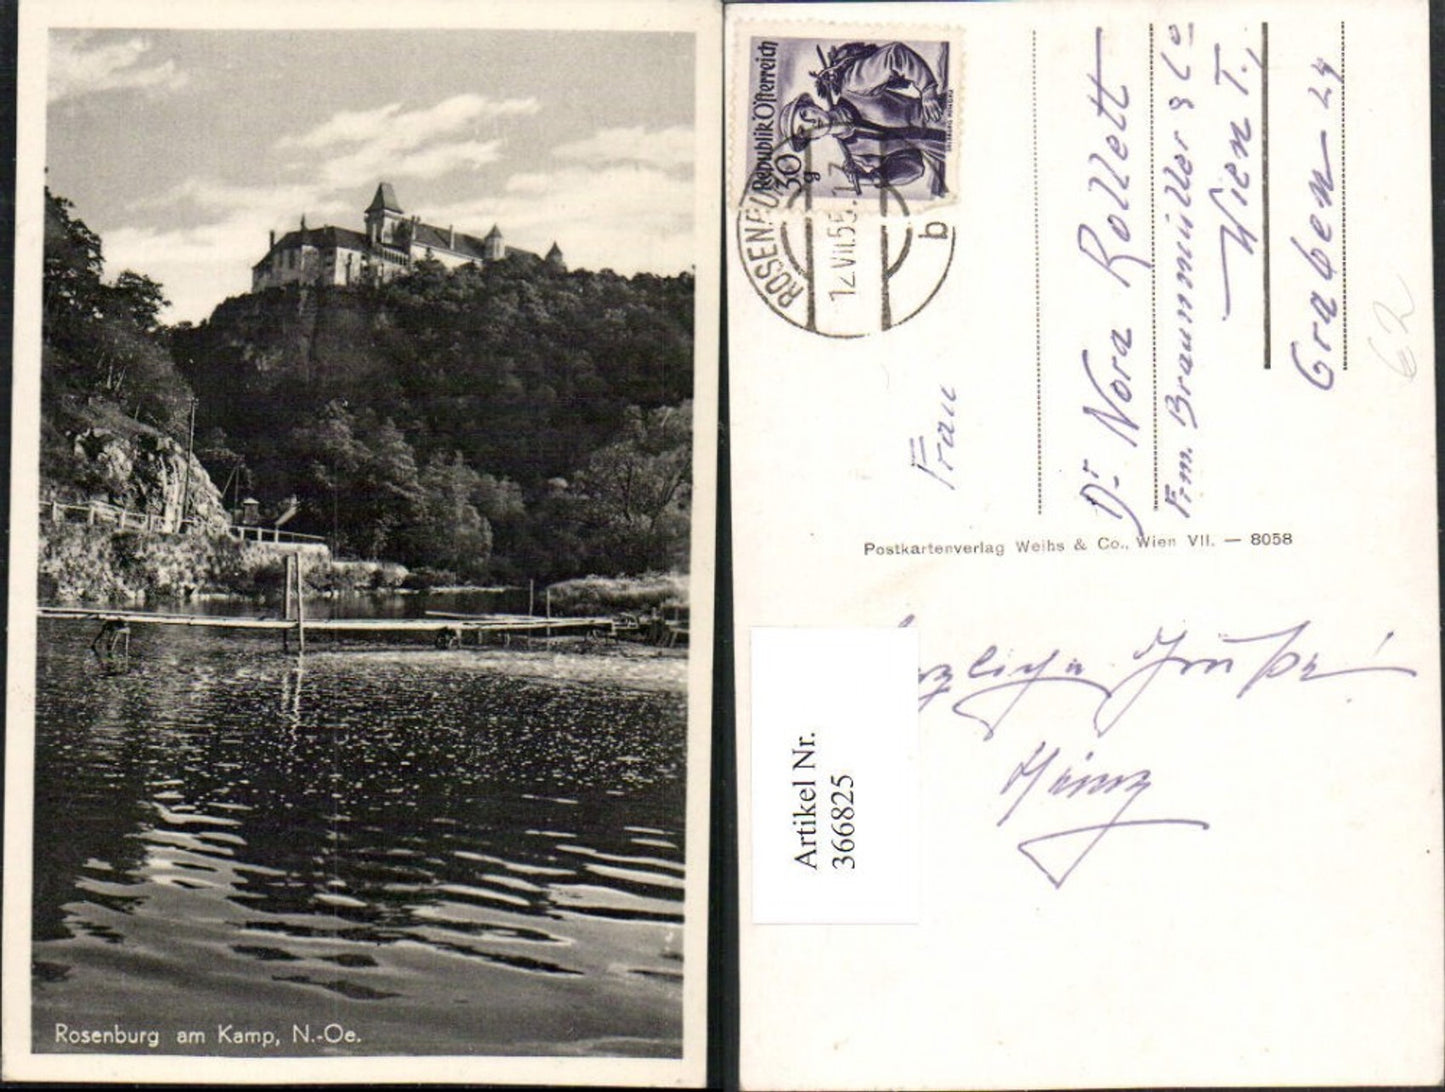 Rosenburg am Kamp, N.-Oe.
Republik Österreich
30 g
ROSENBU
12.VII.55.
b
Frau
Dr Nora Rollett
Frm. Braunmüller & Co
Wien I.,
Graben 24
62
Postkartenverlag Weihs & Co., Wien VII. — 8058
Grüße!
Heinz
Artikel Nr.
366825